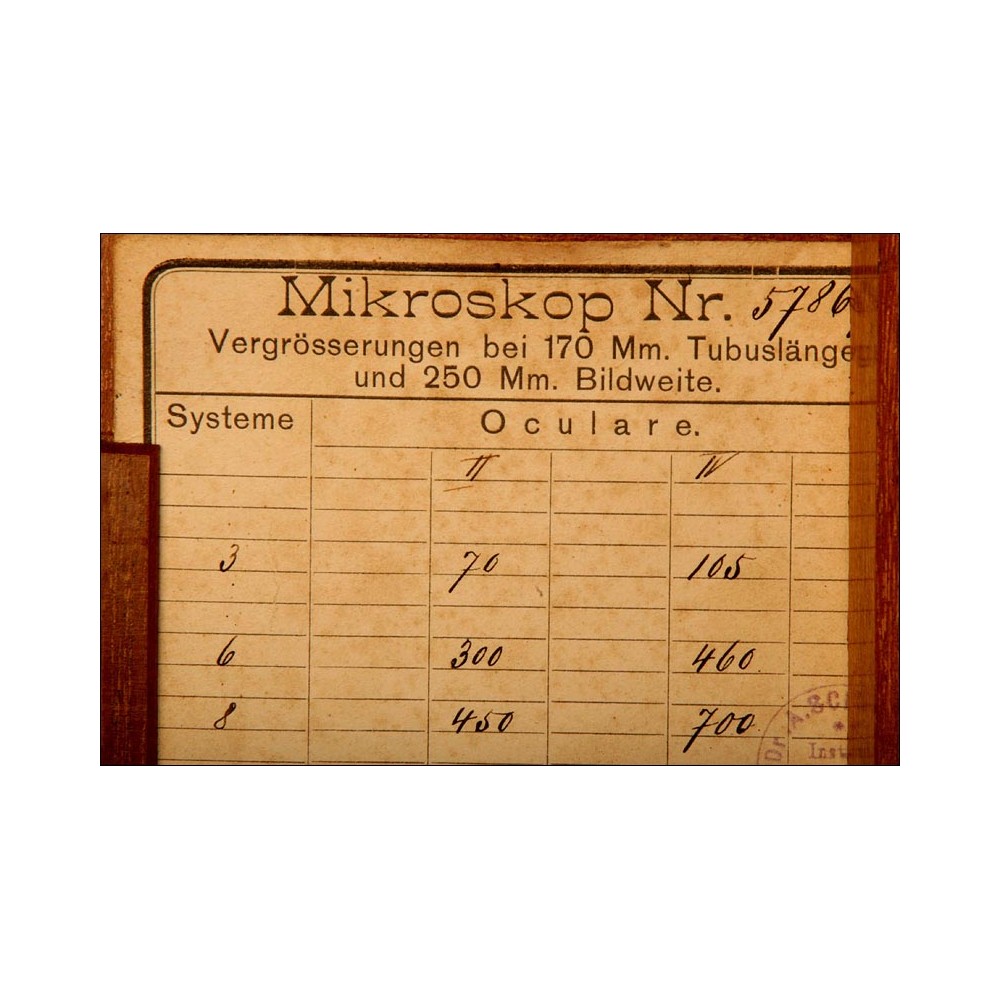 Mikroskop Nr. 5786
Vergrösserungen bei 170 Mm. Tubuslänge
und 250 Mm. Bildweite.
Systeme Oculare.
II IV
3 70 105
6 300 460
8 450 700
Dr. A. &